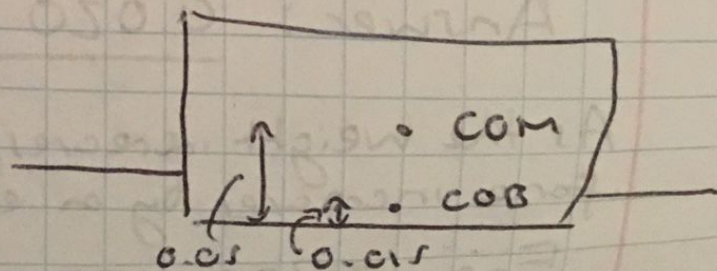 COM
COB
0.05 0.015